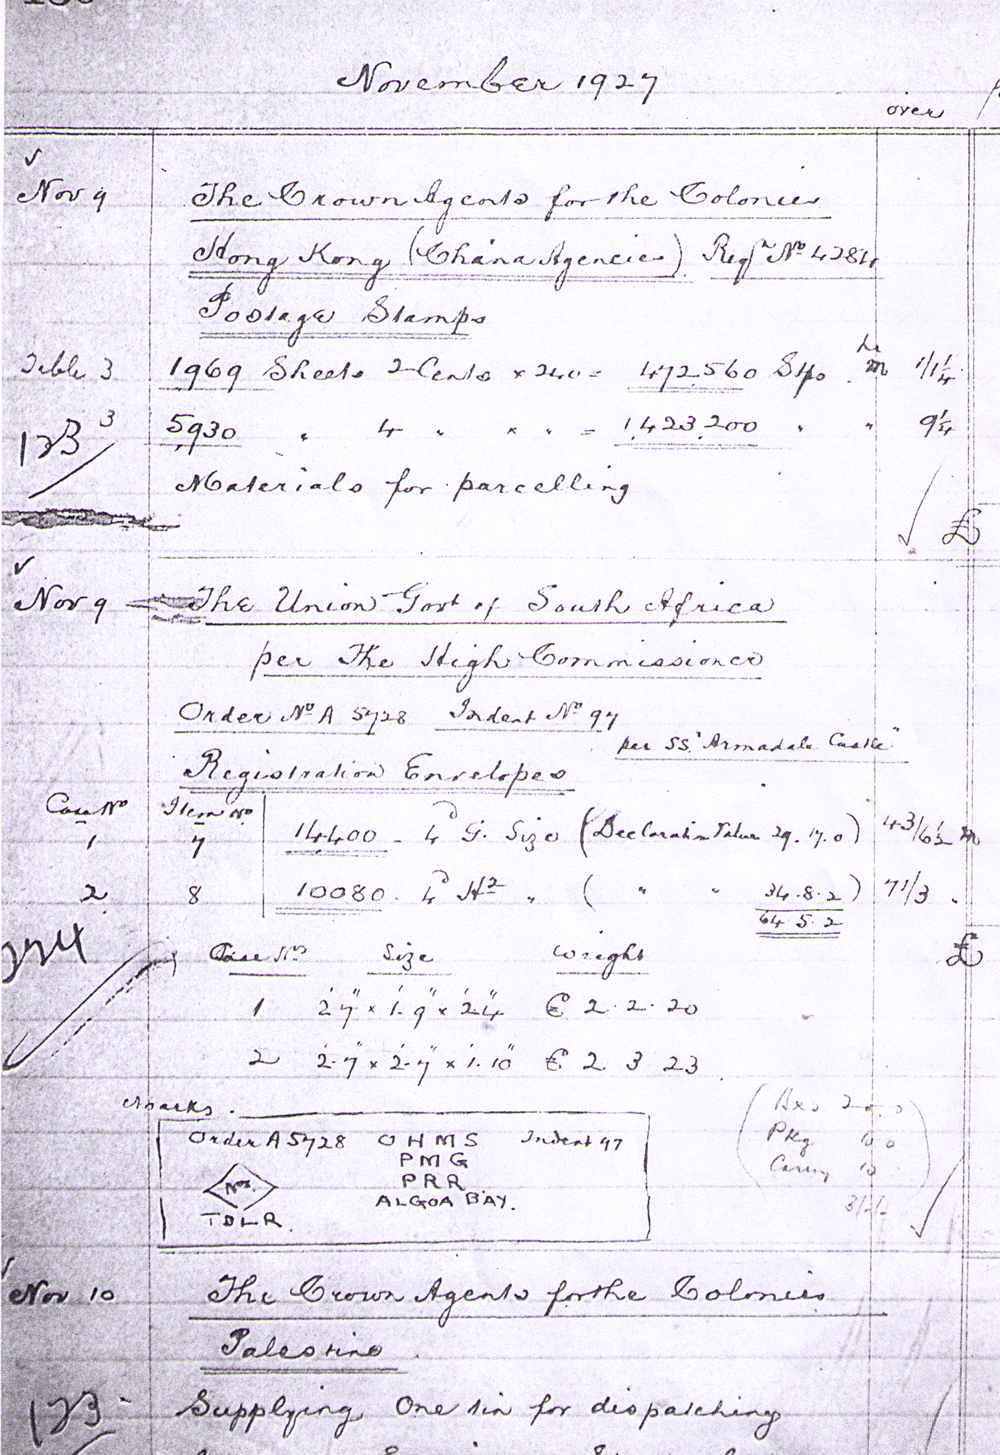 November 1927
over
Nov 9 The Crown Agents for the Colonies
Hong Kong (China Agencies) Reqn No 4284
Postage Stamps
Table 3 1969 Sheets 2 Cents × 240 = 472,560 Stps m 1/1¼
123 3 5930 " 4 " × " = 1,423,200 " " 9¼
Materials for parcelling
£
Nov 9 The Union Govt of South Africa
per The High Commissioner
Order No A 5728 Indent No 97
per SS "Armadale Castle"
Registration Envelopes
Case No Item No
1 7 14400 - 4d G. Size (Declaration Value 29.17.0) 43/6½ m
2 8 10080 - 4d H2 " ( " " 34.8.2) 71/3 "
64.5.2
£
Case No Size Weight
1 2'7" × 1'9" × 2'4" C 2.2.20
2 2'7" × 2'7" × 1'10" C 2 3 23
Marks.
Order A 5728 OHMS Indent 97
PMG
PRR
ALGOA BAY.
Nos.
TDLR.
Pkg
Nov 10 The Crown Agents for the Colonies
Palestine
123 Supplying One tin for dispatching